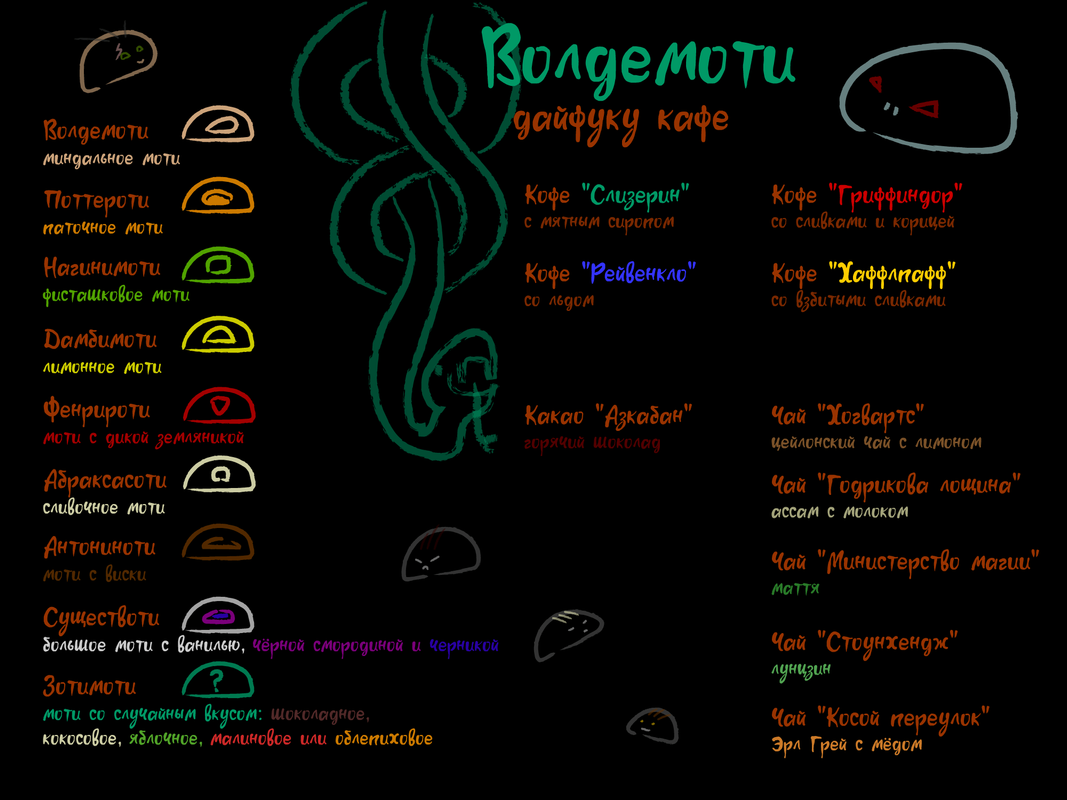 Волдемоти
дайфуку кафе
Волдемоти
миндальное моти
Поттероти
паточное моти
Нагинимоти
фисташковое моти
Дамбимоти
лимонное моти
Фенрироти
моти с дикой земляникой
Абраксасоти
сливочное моти
Антониноти
моти с виски
Существоти
большое моти с ванилью, чёрной смородиной и черникой
Зотимоти
?
моти со случайным вкусом: шоколадное,
кокосовое, яблочное, малиновое или облепиховое
Кофе "Слизерин"
с мятным сиропом
Кофе "Гриффиндор"
со сливками и корицей
Кофе "Рейвенкло"
со льдом
Кофе "Хаффлпафф"
со взбитыми сливками
Какао "Азкабан"
горячий шоколад
Чай "Хогвартс"
цейлонский чай с лимоном
Чай "Годрикова лощина"
ассам с молоком
Чай "Министерство магии"
маття
Чай "Стоунхендж"
лунцзин
Чай "Косой переулок"
Эрл Грей с мёдом